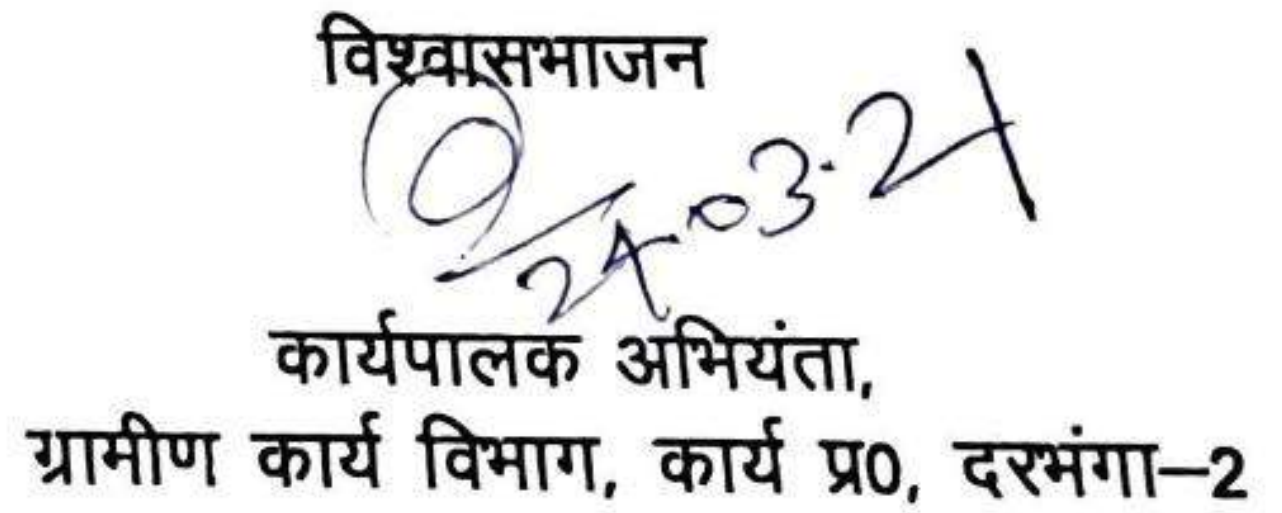 विश्वासभाजन
24.03.21
कार्यपालक अभियंता,
ग्रामीण कार्य विभाग, कार्य प्र0, दरभंगा–2